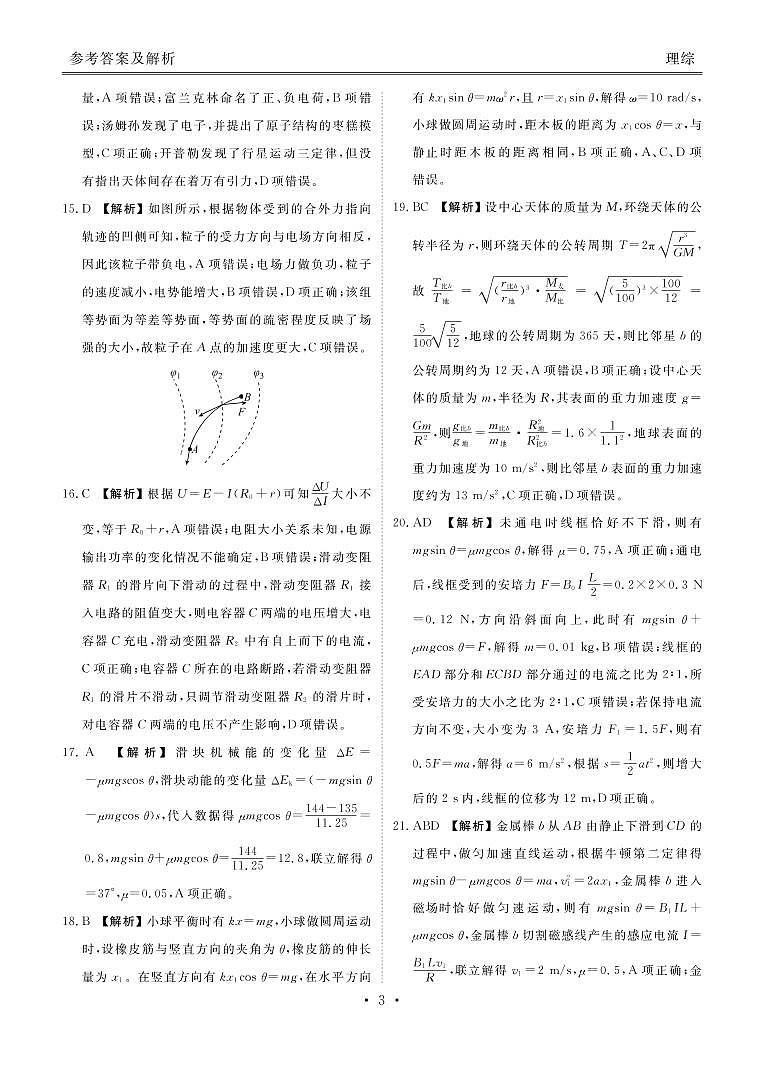 参考答案及解析
理综
量,A 项错误;富兰克林命名了正、负电荷,B 项错
误;汤姆孙发现了电子,并提出了原子结构的枣糕模
型,C 项正确;开普勒发现了行星运动三定律,但没
有指出天体间存在着万有引力,D 项错误。
15. D 【解析】如图所示,根据物体受到的合外力指向
轨迹的凹侧可知,粒子的受力方向与电场方向相反,
因此该粒子带负电,A 项错误;电场力做负功,粒子
的速度减小,电势能增大,B 项错误,D 项正确;该组
等势面为等差等势面,等势面的疏密程度反映了场
强的大小,故粒子在 A 点的加速度更大,C 项错误。
φ₁ φ₂ φ₃
B
v F
A
16. C 【解析】根据 U=E-I(R₀+r)可知 ΔU/ΔI 大小不
变,等于 R₀+r,A 项错误;电阻大小关系未知,电源
输出功率的变化情况不能确定,B 项错误;滑动变阻
器 R₁ 的滑片向下滑动的过程中,滑动变阻器 R₁ 接
入电路的阻值变大,则电容器 C 两端的电压增大,电
容器 C 充电,滑动变阻器 R₂ 中有自上而下的电流,
C 项正确;电容器 C 所在的电路断路,若滑动变阻器
R₁ 的滑片不滑动,只调节滑动变阻器 R₂ 的滑片时,
对电容器 C 两端的电压不产生影响,D 项错误。
17. A 【解析】滑块机械能的变化量 ΔE=
-μmgscos θ,滑块动能的变化量 ΔEₖ=(-mgsin θ
-μmgcos θ)s,代入数据得 μmgcos θ=(144-135)/11.25=
0.8,mgsin θ+μmgcos θ=144/11.25=12.8,联立解得 θ
=37°,μ=0.05,A 项正确。
18. B 【解析】小球平衡时有 kx=mg,小球做圆周运动
时,设橡皮筋与竖直方向的夹角为 θ,橡皮筋的伸长
量为 x₁。在竖直方向有 kx₁cos θ=mg,在水平方向
有 kx₁sin θ=mω²r,且 r=x₁sin θ,解得 ω=10 rad/s,
小球做圆周运动时,距木板的距离为 x₁cos θ=x,与
静止时距木板的距离相同,B 项正确,A、C、D 项
错误。
19. BC 【解析】设中心天体的质量为 M,环绕天体的公
转半径为 r,则环绕天体的公转周期 T=2π√(r³/GM),
故 T比b/T地 = √((r比b/r地)³·M太/M比) = √((5/100)³×100/12) =
5/100√(5/12),地球的公转周期为 365 天,则比邻星 b 的
公转周期约为 12 天,A 项错误,B 项正确;设中心天
体的质量为 m,半径为 R,其表面的重力加速度 g=
Gm/R²,则 g比b/g地 = m比b/m地·R²地/R²比b=1.6×1/1.1²,地球表面的
重力加速度为 10 m/s²,则比邻星 b 表面的重力加速
度约为 13 m/s²,C 项正确,D 项错误。
20. AD 【解析】未通电时线框恰好不下滑,则有
mgsin θ=μmgcos θ,解得 μ=0.75,A 项正确;通电
后,线框受到的安培力 F=B₀I L/2=0.2×2×0.3 N
=0.12 N,方向沿斜面向上,此时有 mgsin θ+
μmgcos θ=F,解得 m=0.01 kg,B 项错误;线框的
EAD 部分和 ECBD 部分通过的电流之比为 2∶1,所
受安培力的大小之比为 2∶1,C 项错误;若保持电流
方向不变,大小变为 3 A,安培力 F₁=1.5F,则有
0.5F=ma,解得 a=6 m/s²,根据 s=1/2 at²,则增大
后的 2 s 内,线框的位移为 12 m,D 项正确。
21. ABD 【解析】金属棒 b 从 AB 由静止下滑到 CD 的
过程中,做匀加速直线运动,根据牛顿第二定律得
mgsin θ-μmgcos θ=ma,v₁²=2ax₁,金属棒 b 进入
磁场时恰好做匀速运动,则有 mgsin θ=B₁IL+
μmgcos θ,金属棒 b 切割磁感线产生的感应电流 I=
B₁Lv₁/R,联立解得 v₁=2 m/s,μ=0.5,A 项正确;金
• 3 •